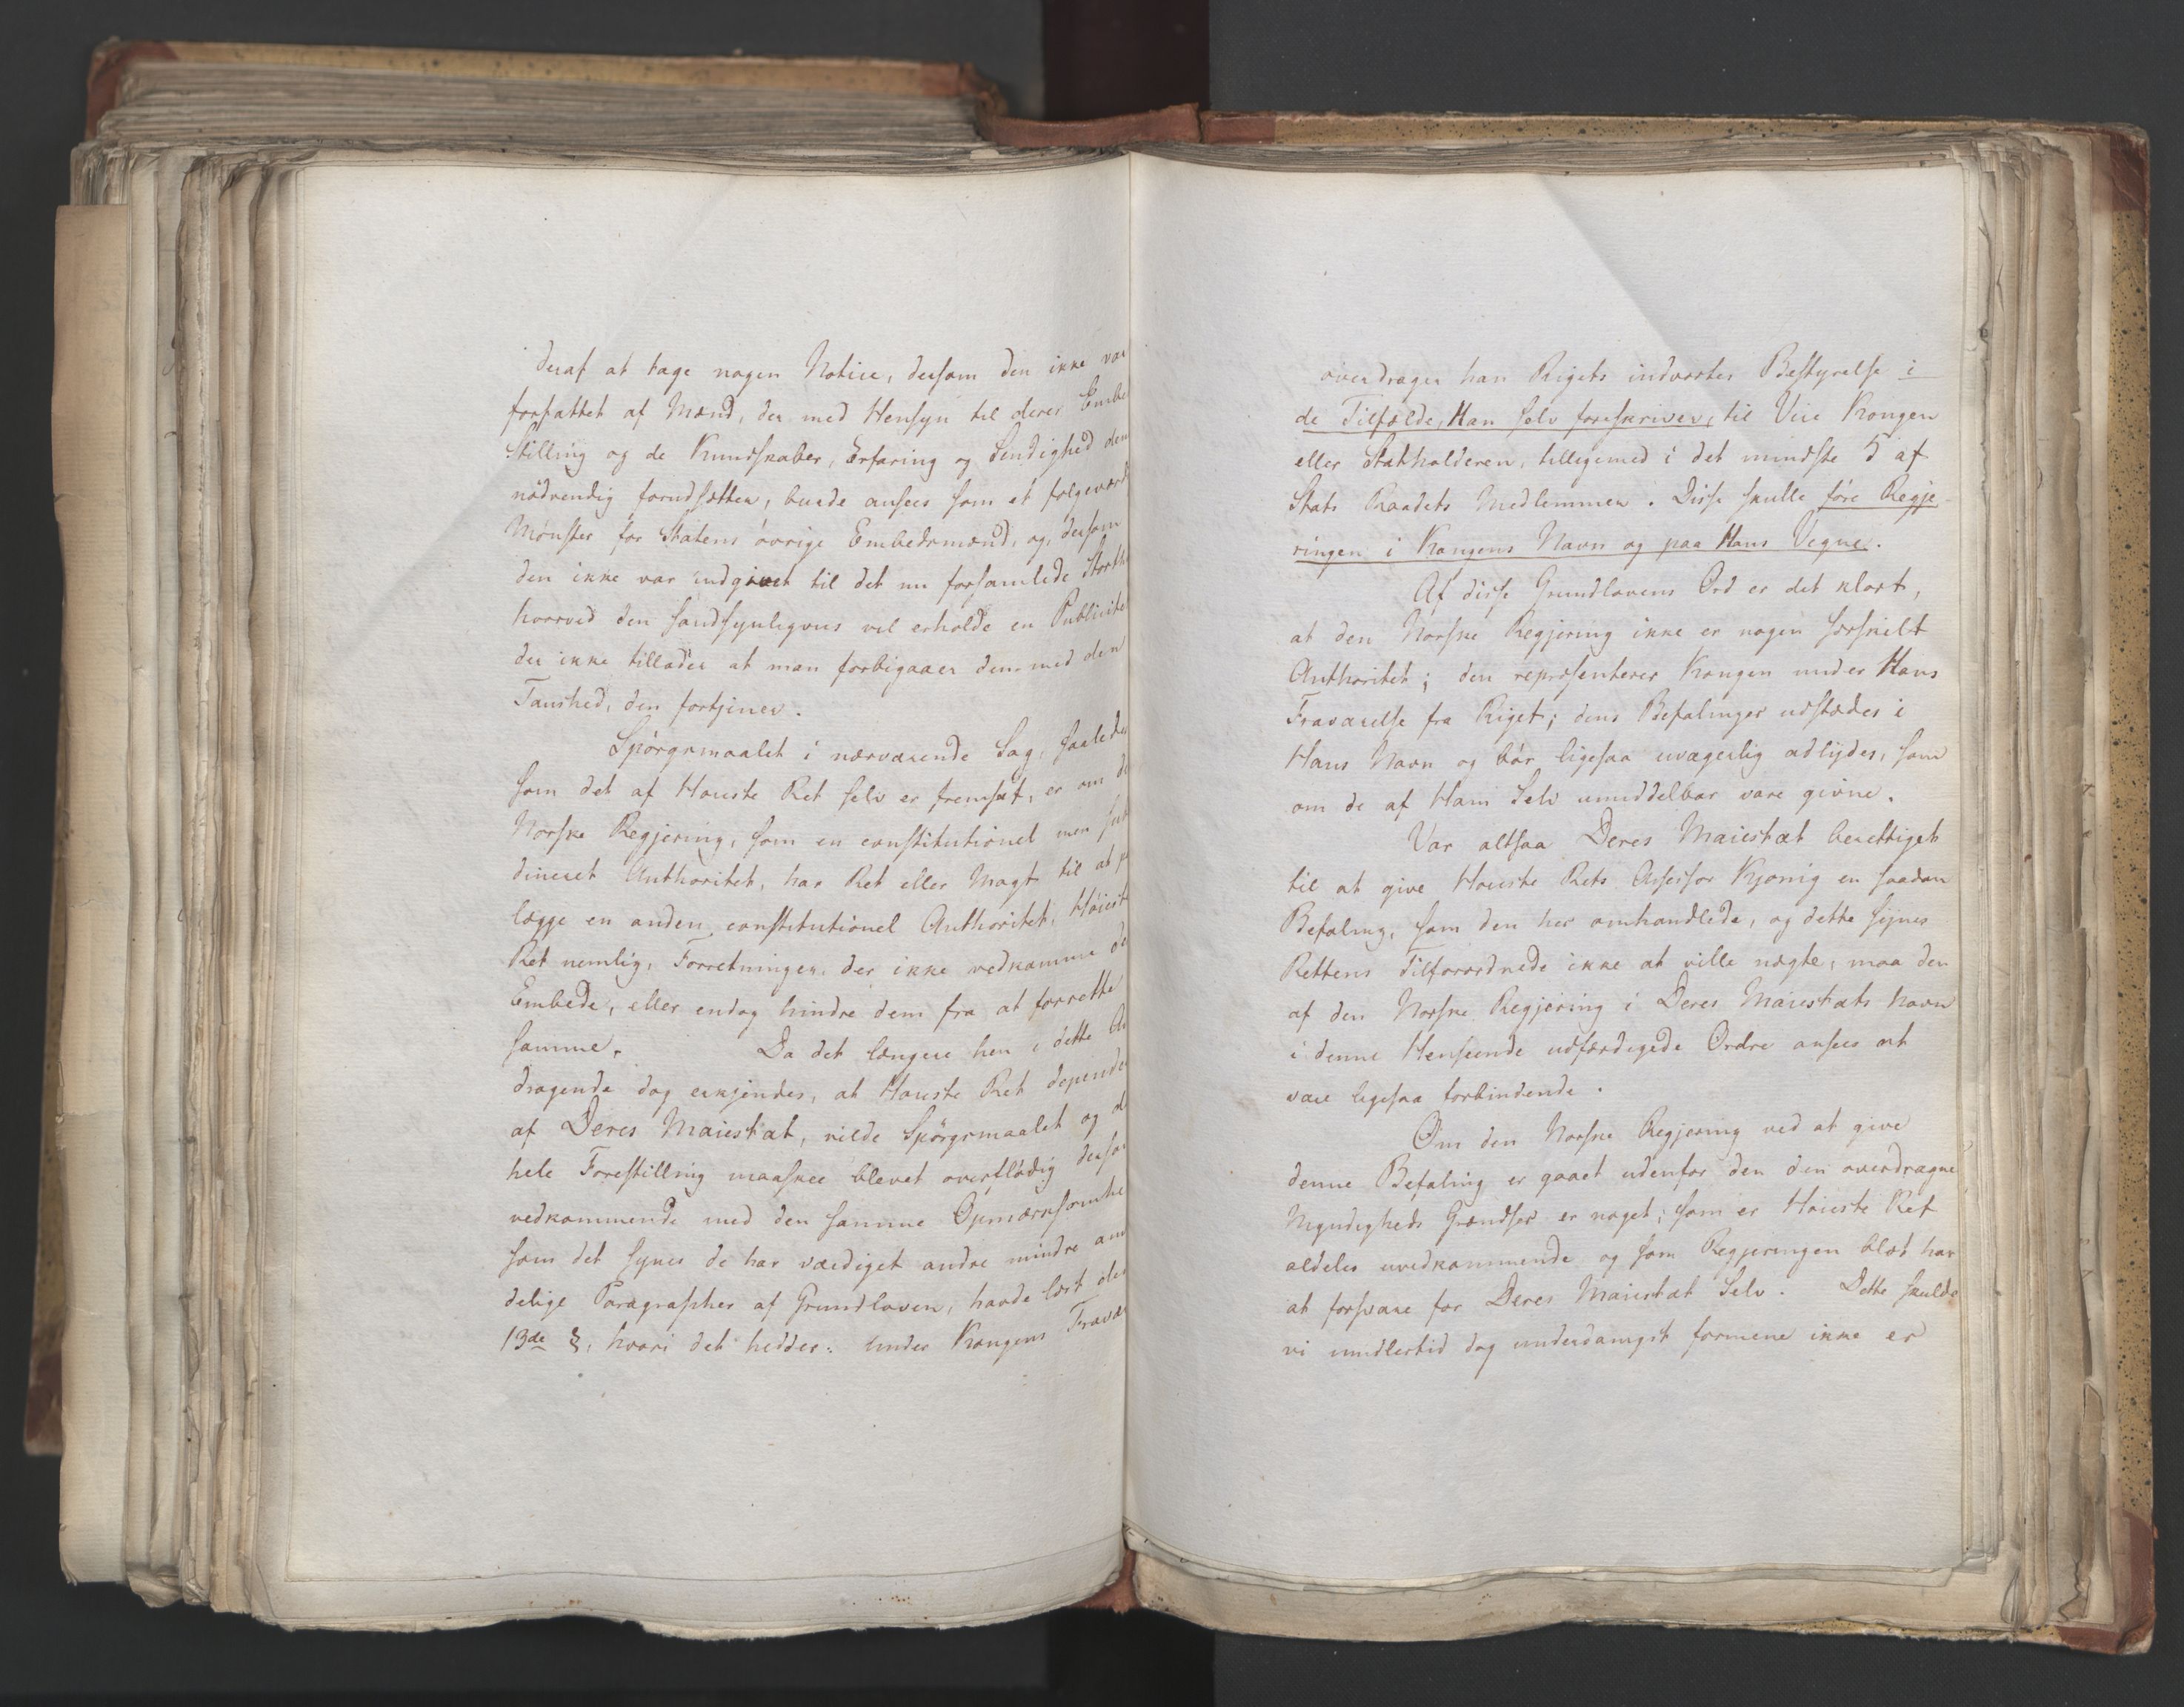 deraf at tage nogen Notice, dersom den ikke var
forfattet af Mænd, der med Hensyn til deres Embe
Stilling og de Kundskaber, Erfaring og Sindighed den
nödvendig forudsætter, burde ansees som et fölgeværd
Mönster for Statens övrige Embedsmænd, og, dersom
den ikke var indgivet til det nu forsamlede Storth
hvorved den sandsynligvis vil erholde en Publicite
der ikke tillader at man forbigaaer den med den
Taushed, den fortjener.
Spörgsmaalet i nærværende Sag, saaledes
som det af Höieste Ret selv er fremsat, er om de
Norske Regjering, som en constitutionel men sub
dineret Authoritet, har Ret eller Magt til at p
lægge en anden constitutionel Authoritet, Höiest
Ret nemlig, Forretninger, der ikke vedkomme de
Embede, eller endog hindre dem fra at forrette
samme. Da det længere hen i dette An
dragende dog erkjendes, at Höieste Ret depende
af Deres Maiestæt, vilde Spörgsmaalet og d
hele Forestilling maaskee blevet overflödig dersom
vedkommende med den samme Opmærksomhe
som det synes de har værdiget andre mindre an
delige Paragrapher af Grundloven, havde læst den
13de §, hvori det hedder: Under Kongens Fravær
overdrager han Rigets indvortes Bestyrelse i
de Tilfælde, Han selv foreskriver, til Vice Kongen
eller Statholderen, tilligemed i det mindste 5 af
Stats Raadets Medlemmer. Disse skulle före Regje-
ringen i Kongens Navn og paa Hans Vegne.
Af disse Grundlovens Ord er det klart,
at den Norske Regjering ikke er nogen særskilt
Authoritet; den repræsenterer Kongen under Hans
Fraværelse fra Riget; dens Befalinger udstædes i
Hans Navn og bör ligesaa uvægerlig adlydes, som
om de af Ham Selv umiddelbar vare givne.
Var altsaa Deres Maiestæt berettiget
til at give Höieste Rets Assessor Kjönig en saadan
Befaling, som den her omhandlede, og dette synes
Rettens Tilforordnede ikke at ville nægte, maa den
af den Norske Regjering i Deres Maiestæts Navn
i denne Henseende udfærdigede Ordre ansees at
være ligesaa forbindende.
Om den Norske Regjering ved at give
denne Befaling er gaaet udenfor den den overdragne
Myndigheds Grændser er noget, som er Höieste Ret
aldeles uvedkommende og som Regjeringen blot har
at forsvare for Deres Maiestæt Selv. Dette skulde
vi imidlertid dog underdanigst formene ikke er